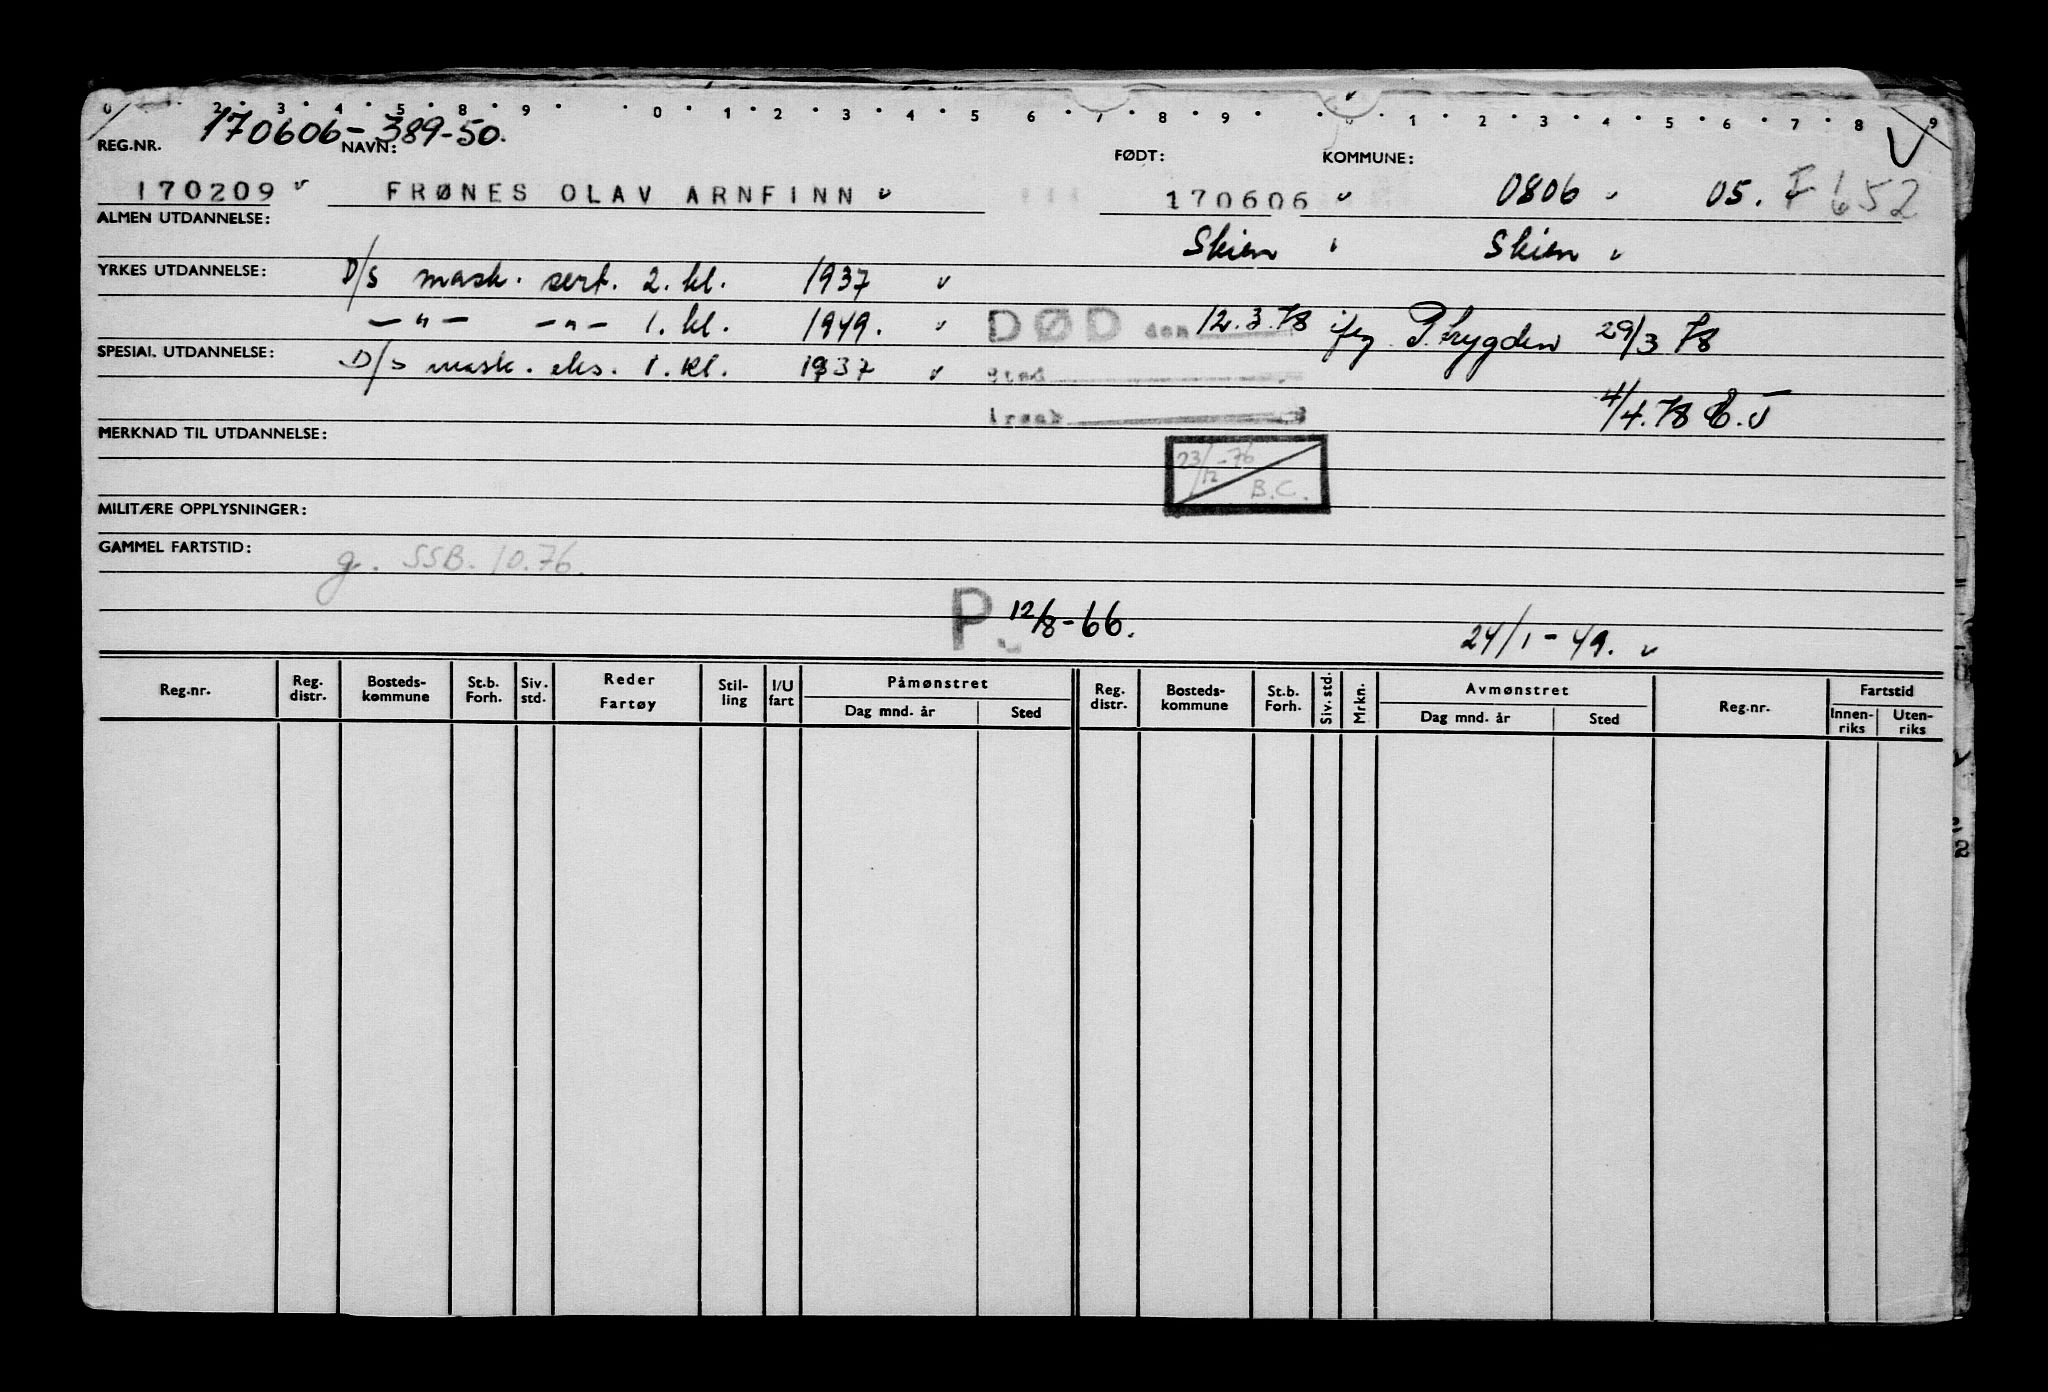 0 2 3 4 5 8 9 0 1 2 3 4 5 6 7 8 9 0 1 2 3 4 5 6 7 8 9
170606-389-50.
REG.NR. NAVN: FØDT: KOMMUNE:
170209 FRØNES OLAV ARNFINN 170606 0806 05. F 652
ALMEN UTDANNELSE:
Skien Skien
YRKES UTDANNELSE: D/S mask. sert. 2. kl. 1937
— " — — " — 1. kl. 1949. DØD den 12.3.78 iføg P. trygden 29/3 78
SPESIAL UTDANNELSE: D/S mask. eks. 1. kl. 1937 Sted
årsak 4/4.78
MERKNAD TIL UTDANNELSE:
23/12 -76 B.C.
MILITÆRE OPPLYSNINGER:
GAMMEL FARTSTID: g. SSB. 10.76.
P. 12/8-66. 24/1-49.
Reg.nr. Reg. distr. Bosteds- kommune St.b. Forh. Siv. std. Reder Fartøy Stil- ling I/U fart Påmønstret Dag mnd. år Sted Reg. distr. Bosteds- kommune St.b. Forh. Siv. std. Mrkn. Avmønstret Dag mnd. år Sted Reg.nr. Fartstid Innen- riks Uten- riks